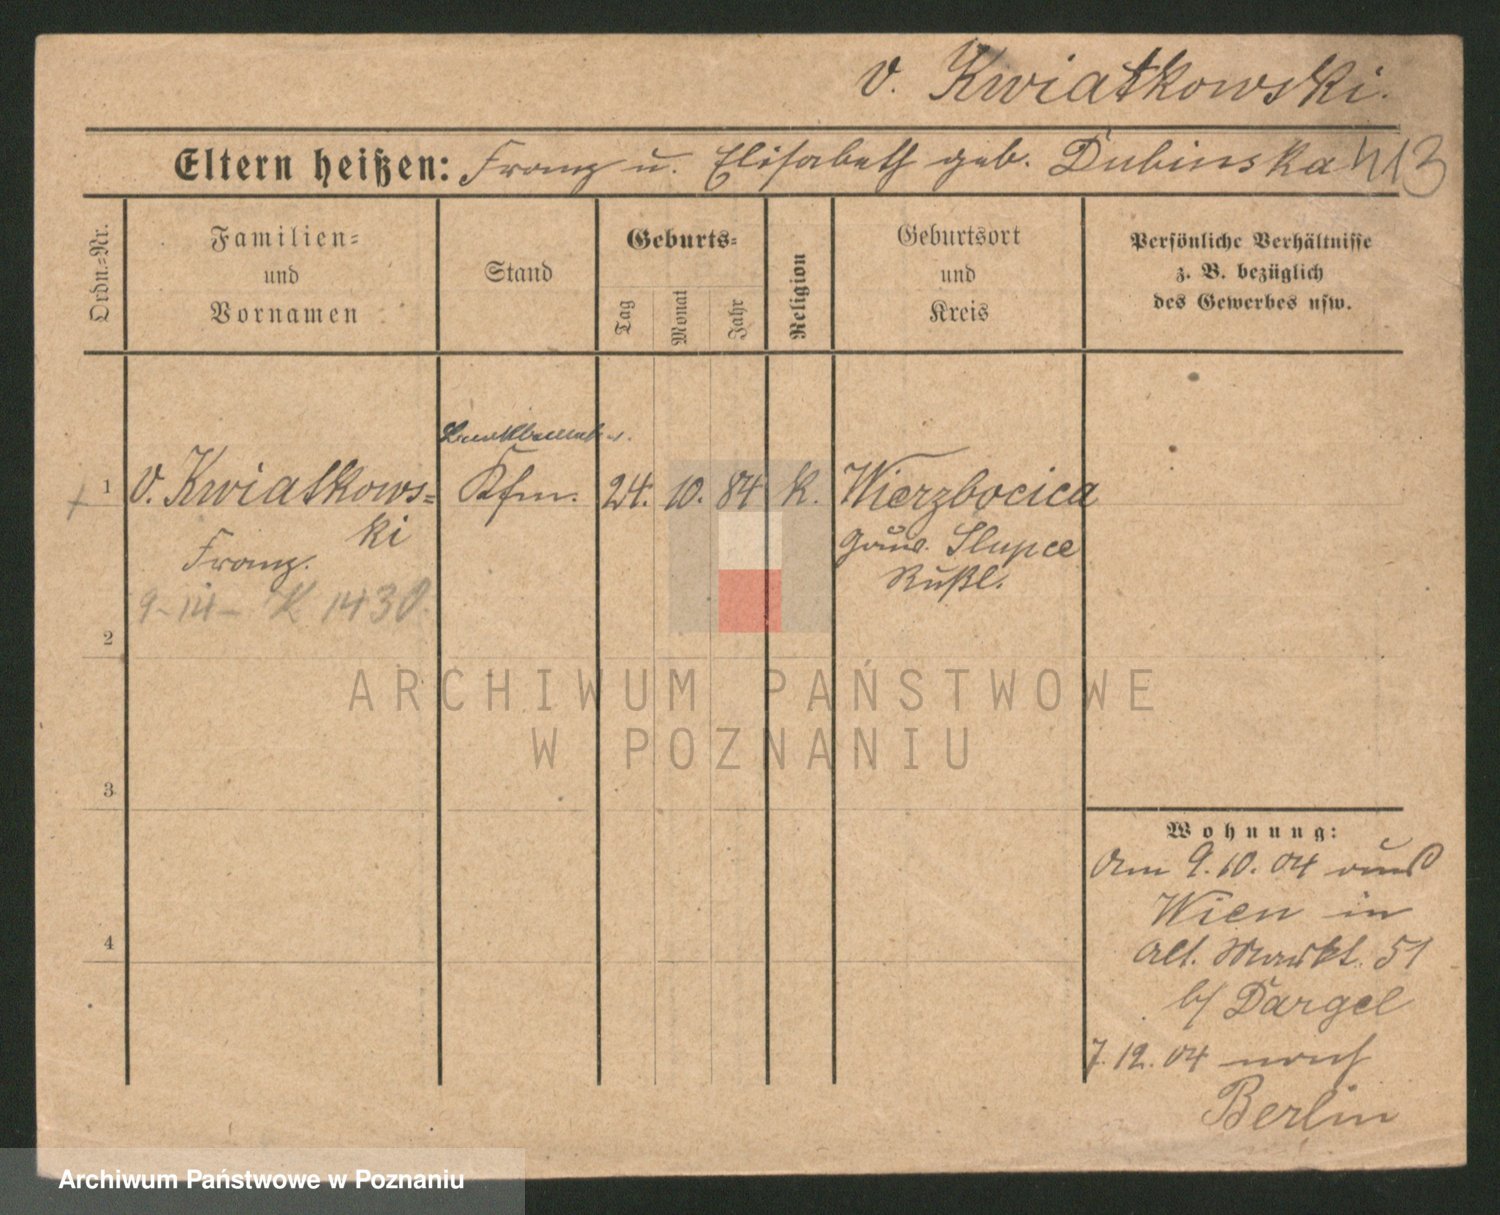 v. Kwiatkowski.
Eltern heißen: Franz u. Elisabeth geb. Dubinska 413
Ordn.=Nr.
Familien=
und
Vornamen
Stand
Geburts=
Tag
Monat
Jahr
Religion
Geburtsort
und
Kreis
Persönliche Verhältnisse
z. B. bezüglich
des Gewerbes usw.
1 v. Kwiatkows= Kfm. 24. 10. 84 k. Wierzbocica
ki
Franz.
Gouv. Slupce
Rußl.
9-14- K 1430
2
ARCHIWUM PAŃSTWOWE
W POZNANIU
3
4
Wohnung:
Am 9.10.04 aus
Wien in
Alt. Markt. 51
b/ Dargel
7.12.04 nach
Berlin
Archiwum Państwowe w Poznaniu